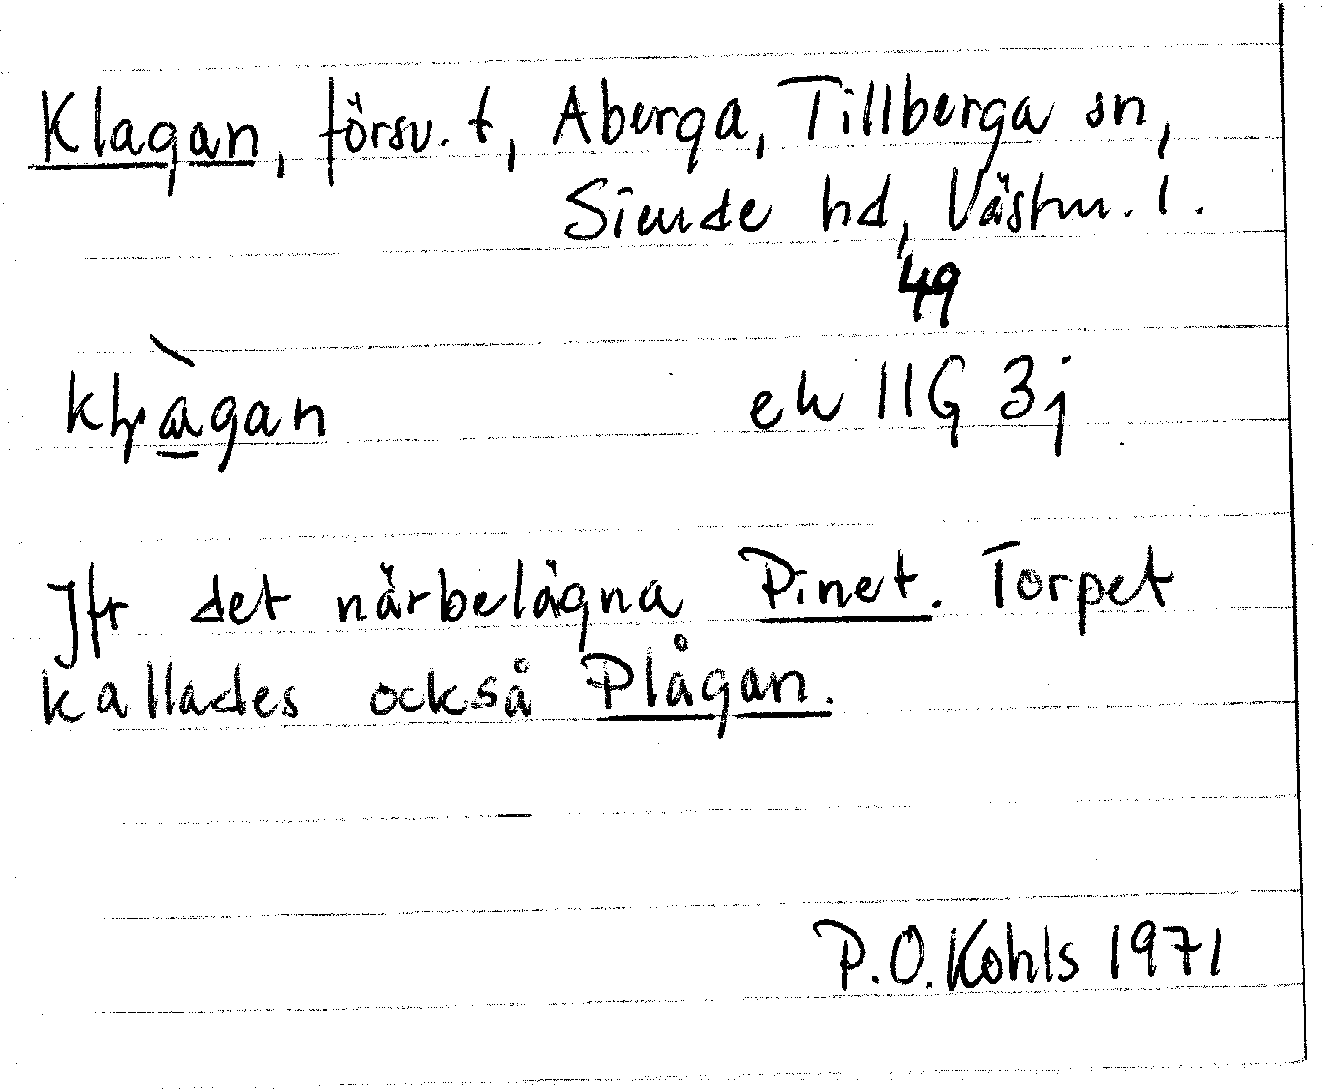 Klagan, försv. t, Aberga, Tillberga sn,
Siende hd, Västm. l.
49
ek 11G 3j
Jfr det närbelägna Pinet. Torpet
kallades också Plågan.
P.O. Kohls 1971